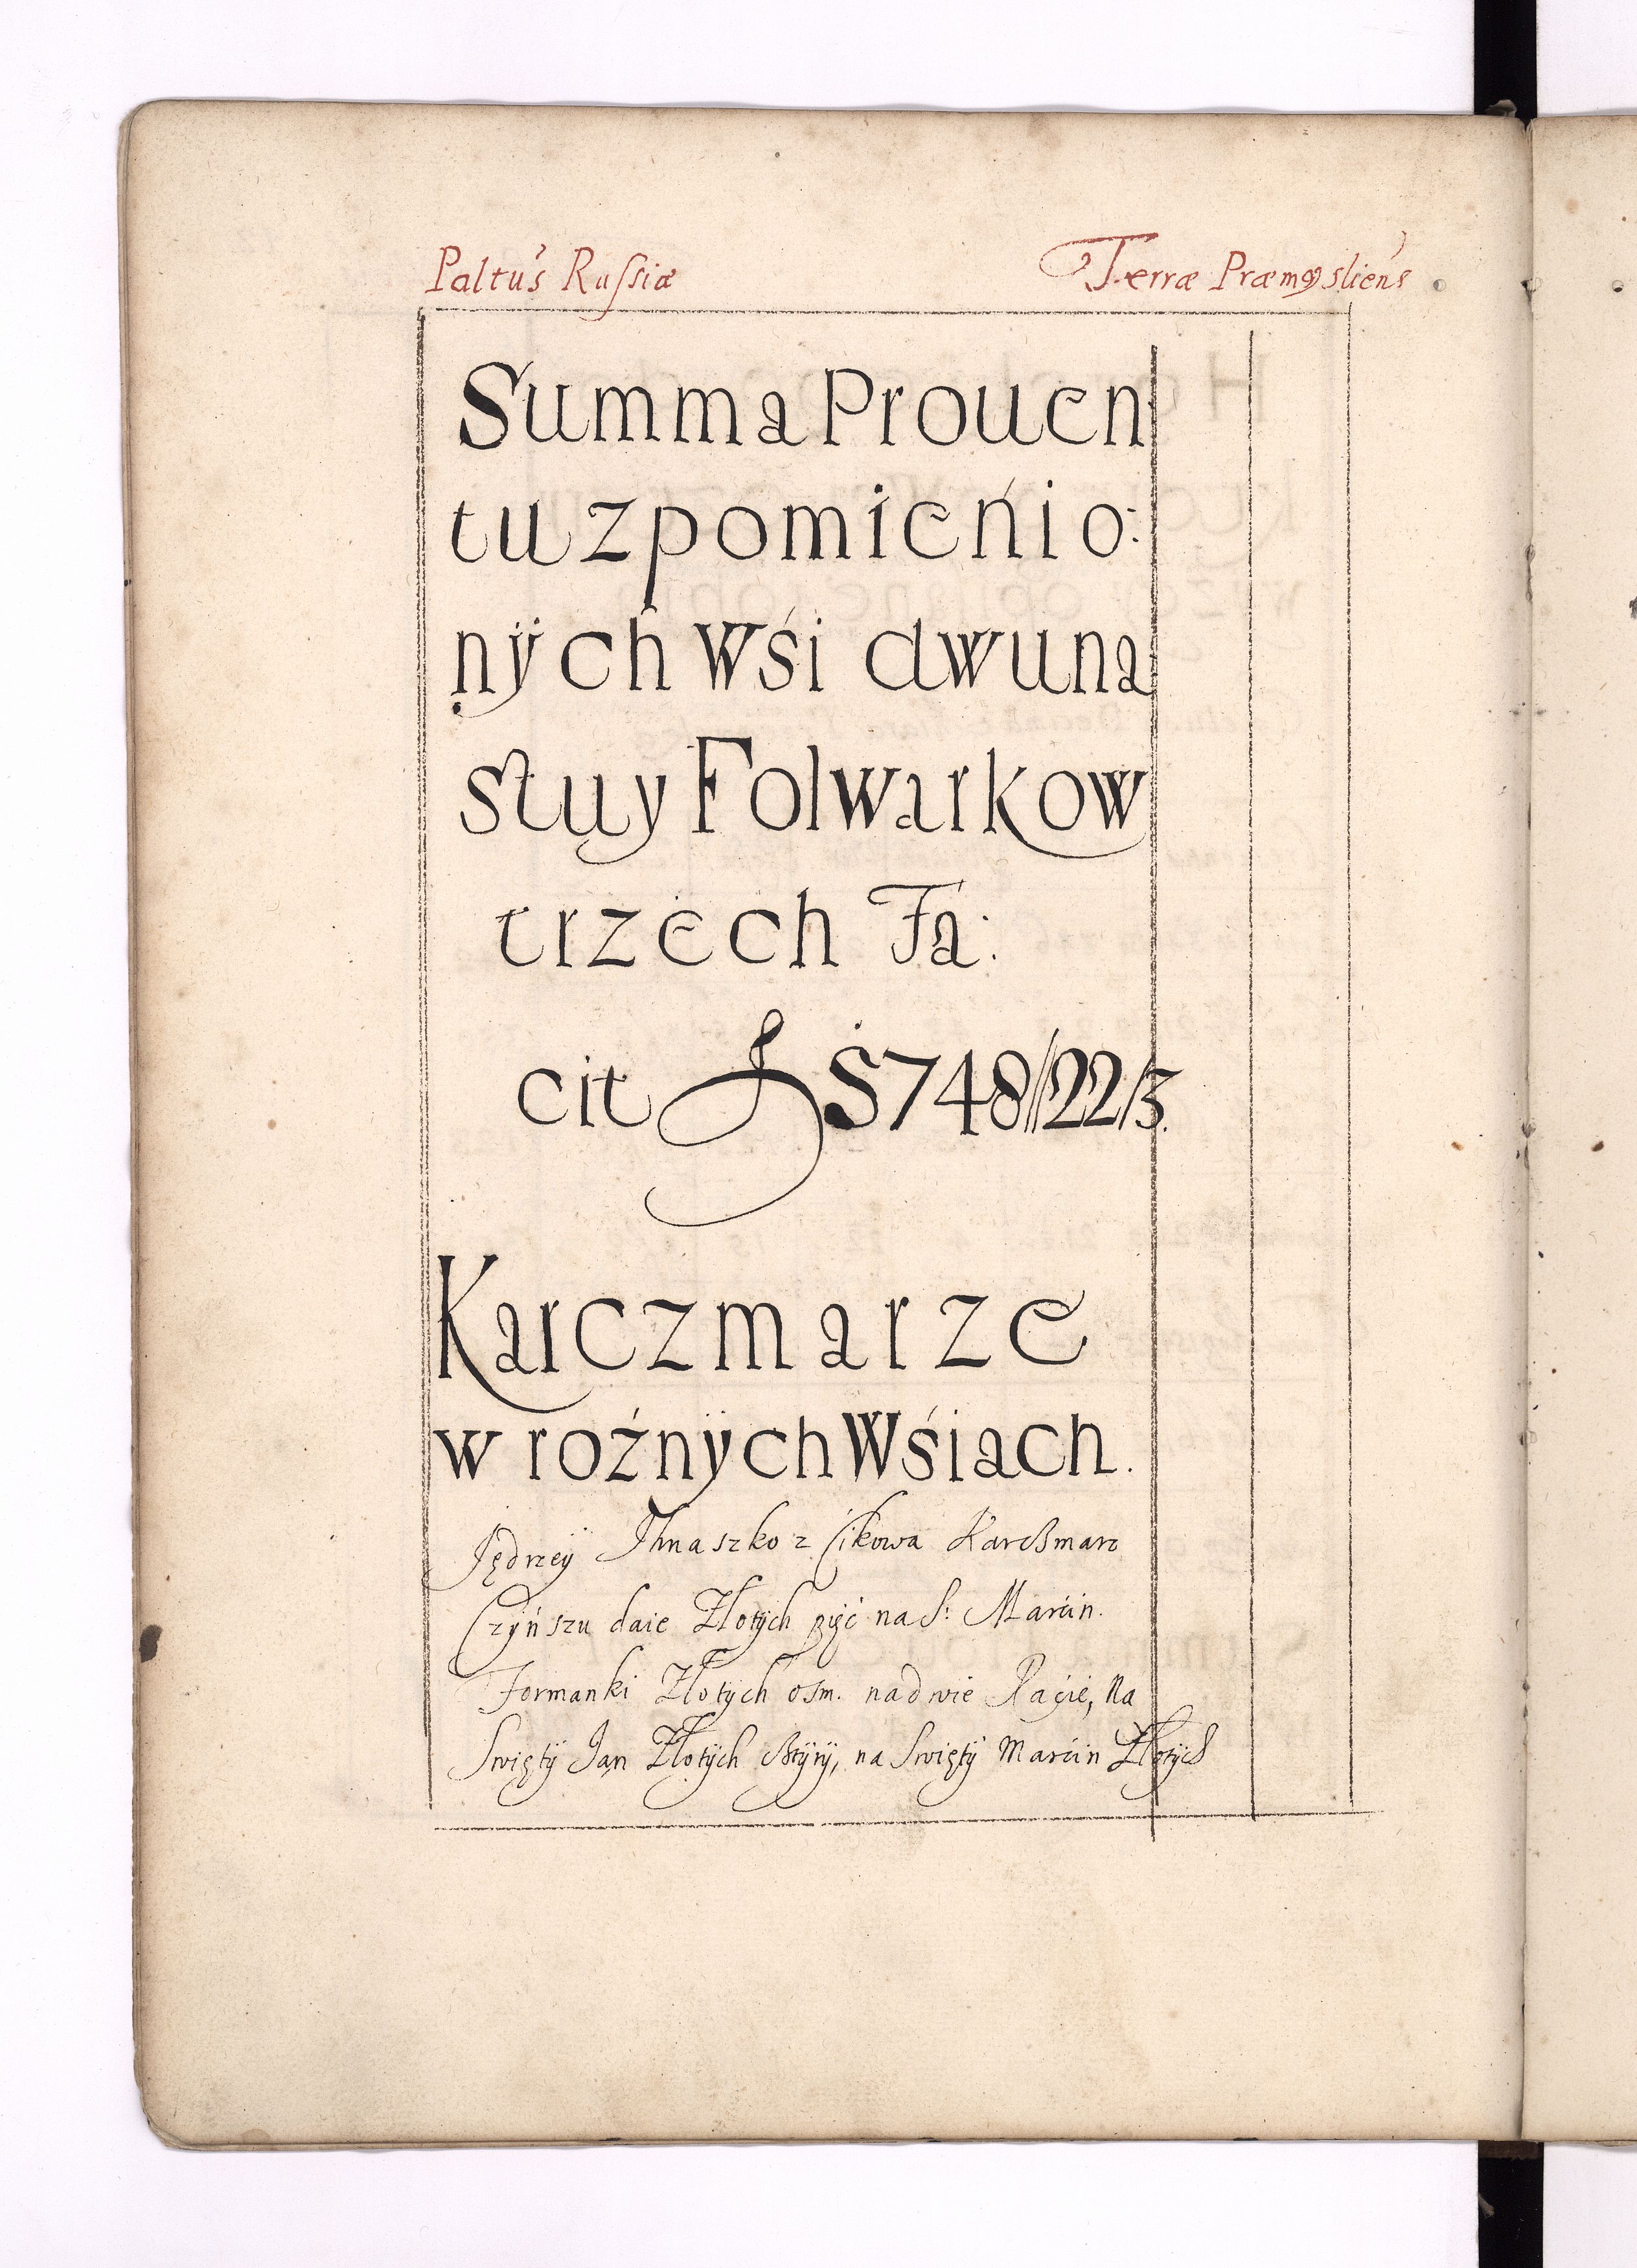 Paltu's Russiæ Terræ Præmysliens
Summa Prouen
tu z pomienio:
nÿch Wśi dwuna
stu y Folwarkow
trzech Fa:
cit 5748//22/3.
Karczmarze
w rożnych Wśiach.
Jędrzeÿ Ihnaszko z Cikowa Karczmarz
Czÿńszu daie Złotÿch pięć na S: Marćin.
Formanki Złotÿch ośm. na dwie Raćie, Na
Swiętÿ Jan Złotÿch cztÿrÿ, na Swiętÿ Marćin Złotÿch